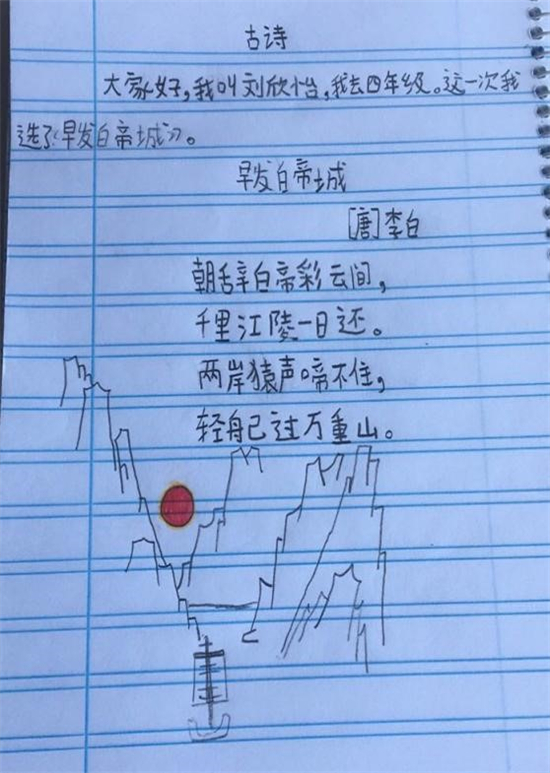 古诗
大家好,我叫刘欣怡,我去四年级。这一次我
选了《早发白帝城》。
早发白帝城
[唐]李白
朝辞白帝彩云间,
千里江陵一日还。
两岸猿声啼不住,
轻舟已过万重山。